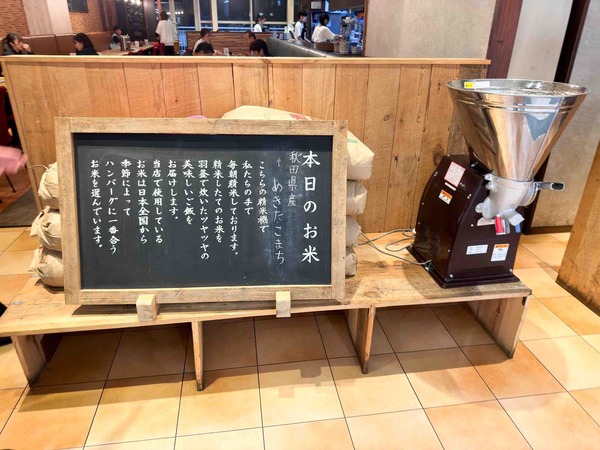 本日のお米
秋田県産
あきたこまち
こちらの精米機で
私たちの手で
毎朝精米しております。
精米したてのお米を
羽釜で炊いたツヤツヤの
美味しいご飯を
お届けします。
当店で使用している
お米は日本全国から
季節によって
ハンバーグに一番合う
お米を選んでいます。